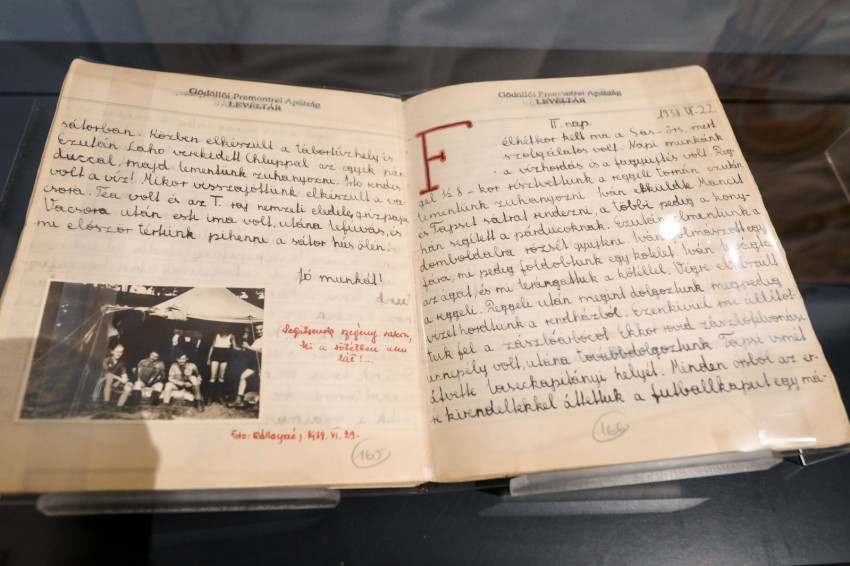 Gödöllői Premontrei Apátság
LEVÉLTÁR
sátorban. Közben elkészült a tábortűzhely is.
Ezután Laho verekedett Chluppal az egyik pár-
duccal, majd lementünk zuhanyozni. Irtó rendes
volt a víz! Mikor visszajöttünk elkészült a va-
csora. Tea volt és az I. raj nemzeti eledele, grízpapa.
Vacsora után esti ima volt, utána lefúvás, és
mi először tértünk pihenni a sátor hűs ölén!
Jó munkát!
Segítsenek szegény vakon,
ki a sötétben nem
lát!...
Foto: 1938. VI. 29.
165
Gödöllői Premontrei Apátság
LEVÉLTÁR
1938. VI. 22
II. nap.
Félhétkor kelt ma a Sas-őrs, mert
szolgálatos volt. Napi munkánk
a vízhordás és a fagyujtés volt. Reg-
gel ½ 8-kor résztvettünk a reggeli tornán, ezután
lementünk zuhanyozni. Iván elküldte Mancit
és Tapsit sátrat rendezni, a többi pedig a kony-
hán segített a párducoknak. Ezután elmentünk a
domboldalra rőzsét gyujteni. Iván felmászott egy
fára, mi pedig földobtunk egy kötelet. Iván levágta
az ágat, és mi lerángattuk a kötéllel. Végre elkészült
a reggeli. Reggeli után megint dolgoztunk, mégpedig
vizet hordtunk a rendházból. Ezenkívül mi állítot-
tuk fel a zászlóárbócot. Ekkor rövid zászlófelvonási
ünnepély volt, utána továbbdolgoztunk. Tapsi ismét
átvette kapitányi helyét. Minden őrsből az er-
re kirendeltekkel áttettük a futballkaput egy má-
166